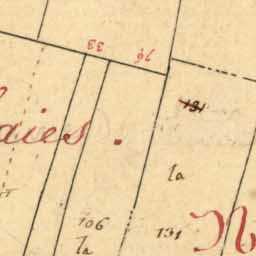 33 76
131
aies.
la
106 131 N
la